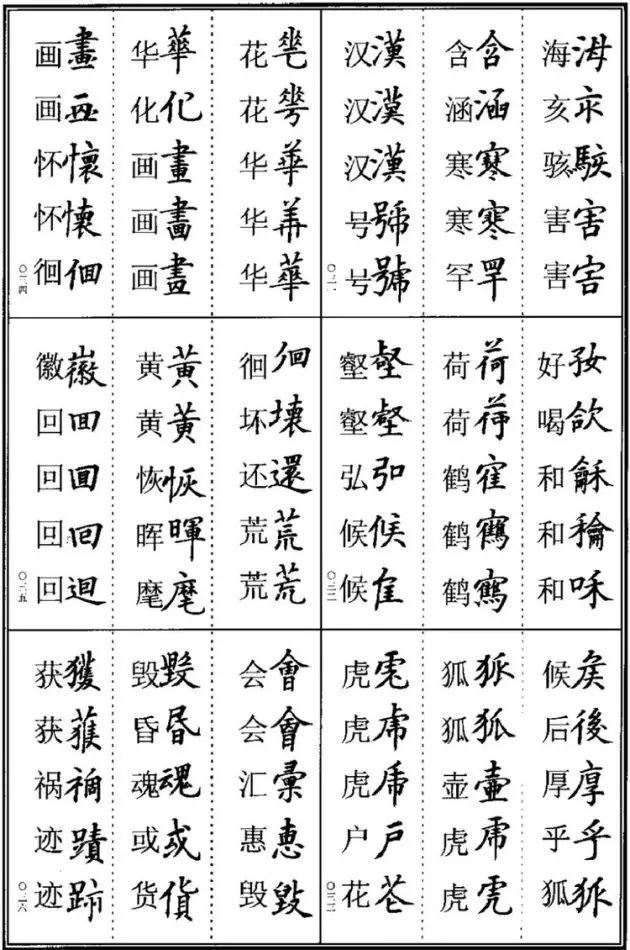 海
亥
骇駭
害害
害害
含含
涵涵
寒寒
寒寒
罕罕
汉漢
汉漢
汉漢
号號
号號
〇二一
好
喝欱
和龢
和
和咊
荷荷
荷荷
鹤隺
鹤鶴
鹤鶴
壑壑
壑壑
弘
候候
候
〇二二
候矦
后後
厚厚
乎乎
狐狐
狐狐
狐狐
壶壺
虎
虎
虎
虎
虎
户戶
花
〇二三
花
花
华華
华
华華
华華
化化
画畫
画畫
画畫
画畫
画
怀懷
怀懷
徊佪
〇二四
徊徊
坏壞
还還
荒荒
荒荒
黄黃
黄黃
恢恢
晖暉
麾麾
徽徽
回囬
回囬
回回
回迴
〇二五
会會
会會
汇彙
惠惠
毁毀
毁毀
昏昬
魂魂
或或
货貨
获獲
获
祸禍
迹蹟
迹跡
〇二六